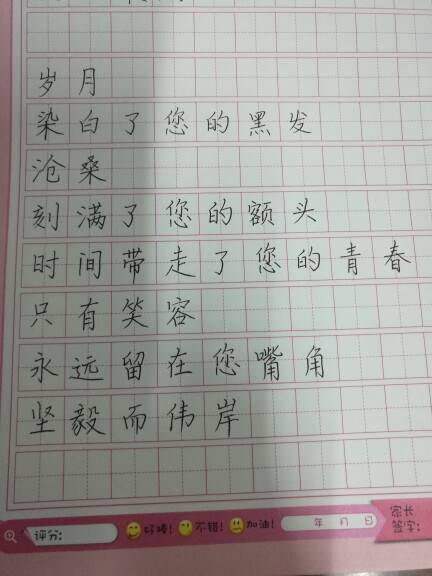 岁月
染白了您的黑发
沧桑
刻满了您的额头
时间带走了您的青春
只有笑容
永远留在您嘴角
坚毅而伟岸
评分: 好棒! 不错! 加油! 年 月 日 家长
签字: